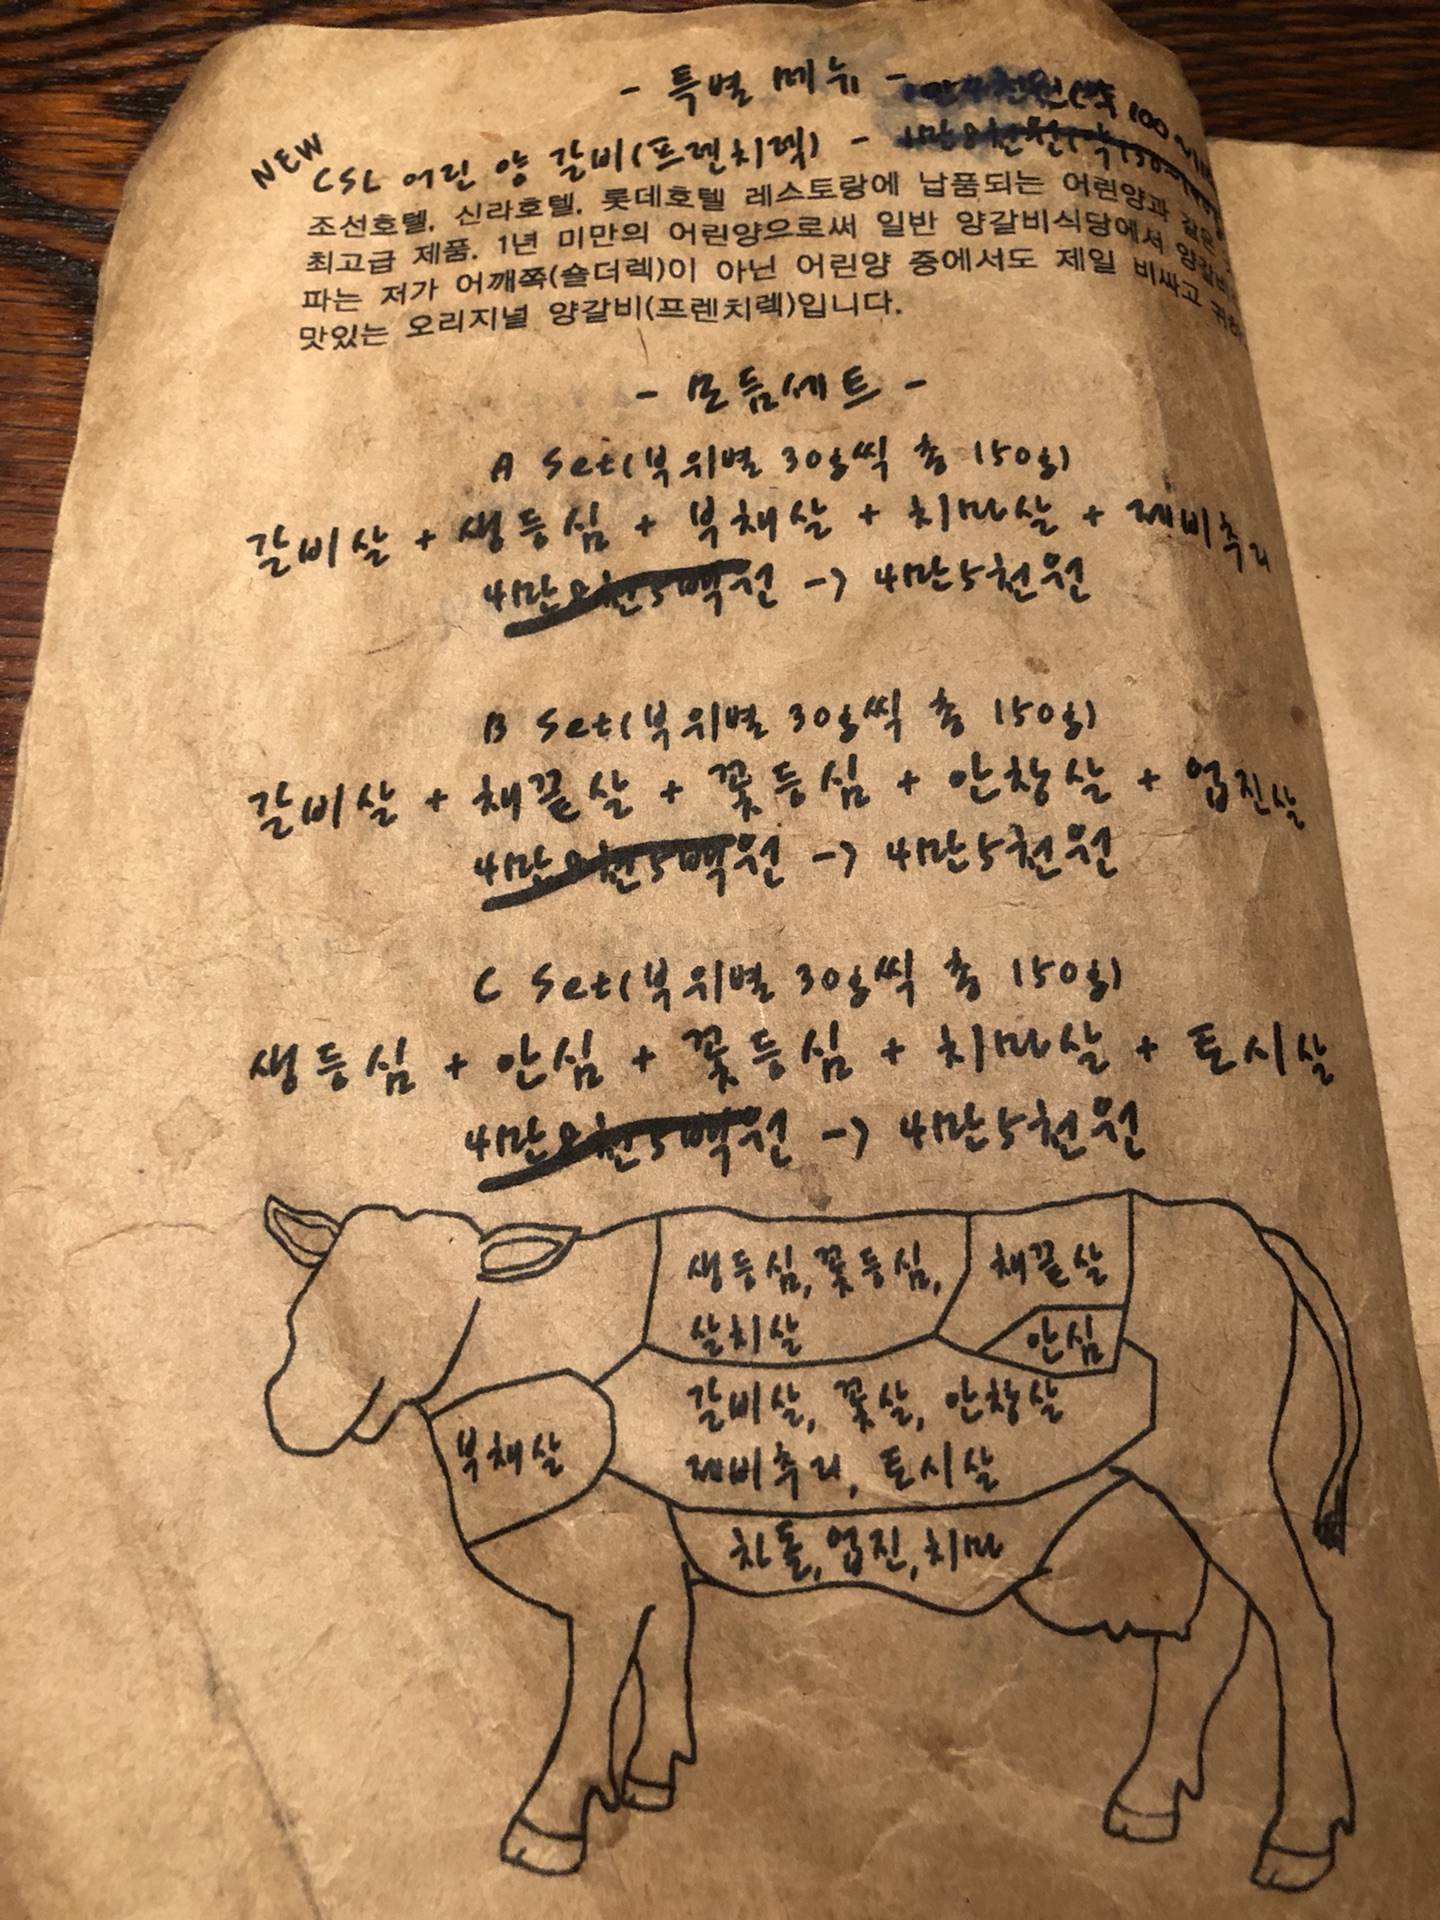 - 특별 메뉴 -
NEW
CSL 어린 양 갈비(프렌치렉) -
조선호텔, 신라호텔, 롯데호텔 레스토랑에 납품되는 어린양과 같은
최고급 제품. 1년 미만의 어린양으로써 일반 양갈비식당에서
파는 저가 어깨쪽(숄더렉)이 아닌 어린양 중에서도 제일 비싸고
맛있는 오리지널 양갈비(프렌치렉)입니다.
- 모듬세트 -
A Set(부위별 30g씩 총 150g)
갈비살 + 생등심 + 부채살 + 치마살 + 제비추리
4만8천5백원 -> 4만5천원
B Set(부위별 30g씩 총 150g)
갈비살 + 채끝살 + 꽃등심 + 안창살 + 업진살
4만8천5백원 -> 4만5천원
C Set(부위별 30g씩 총 150g)
생등심 + 안심 + 꽃등심 + 치마살 + 토시살
4만8천5백원 -> 4만5천원
생등심, 꽃등심,
살치살
채끝살
안심
갈비살, 꽃살, 안창살
제비추리, 토시살
부채살
차돌, 업진, 치마